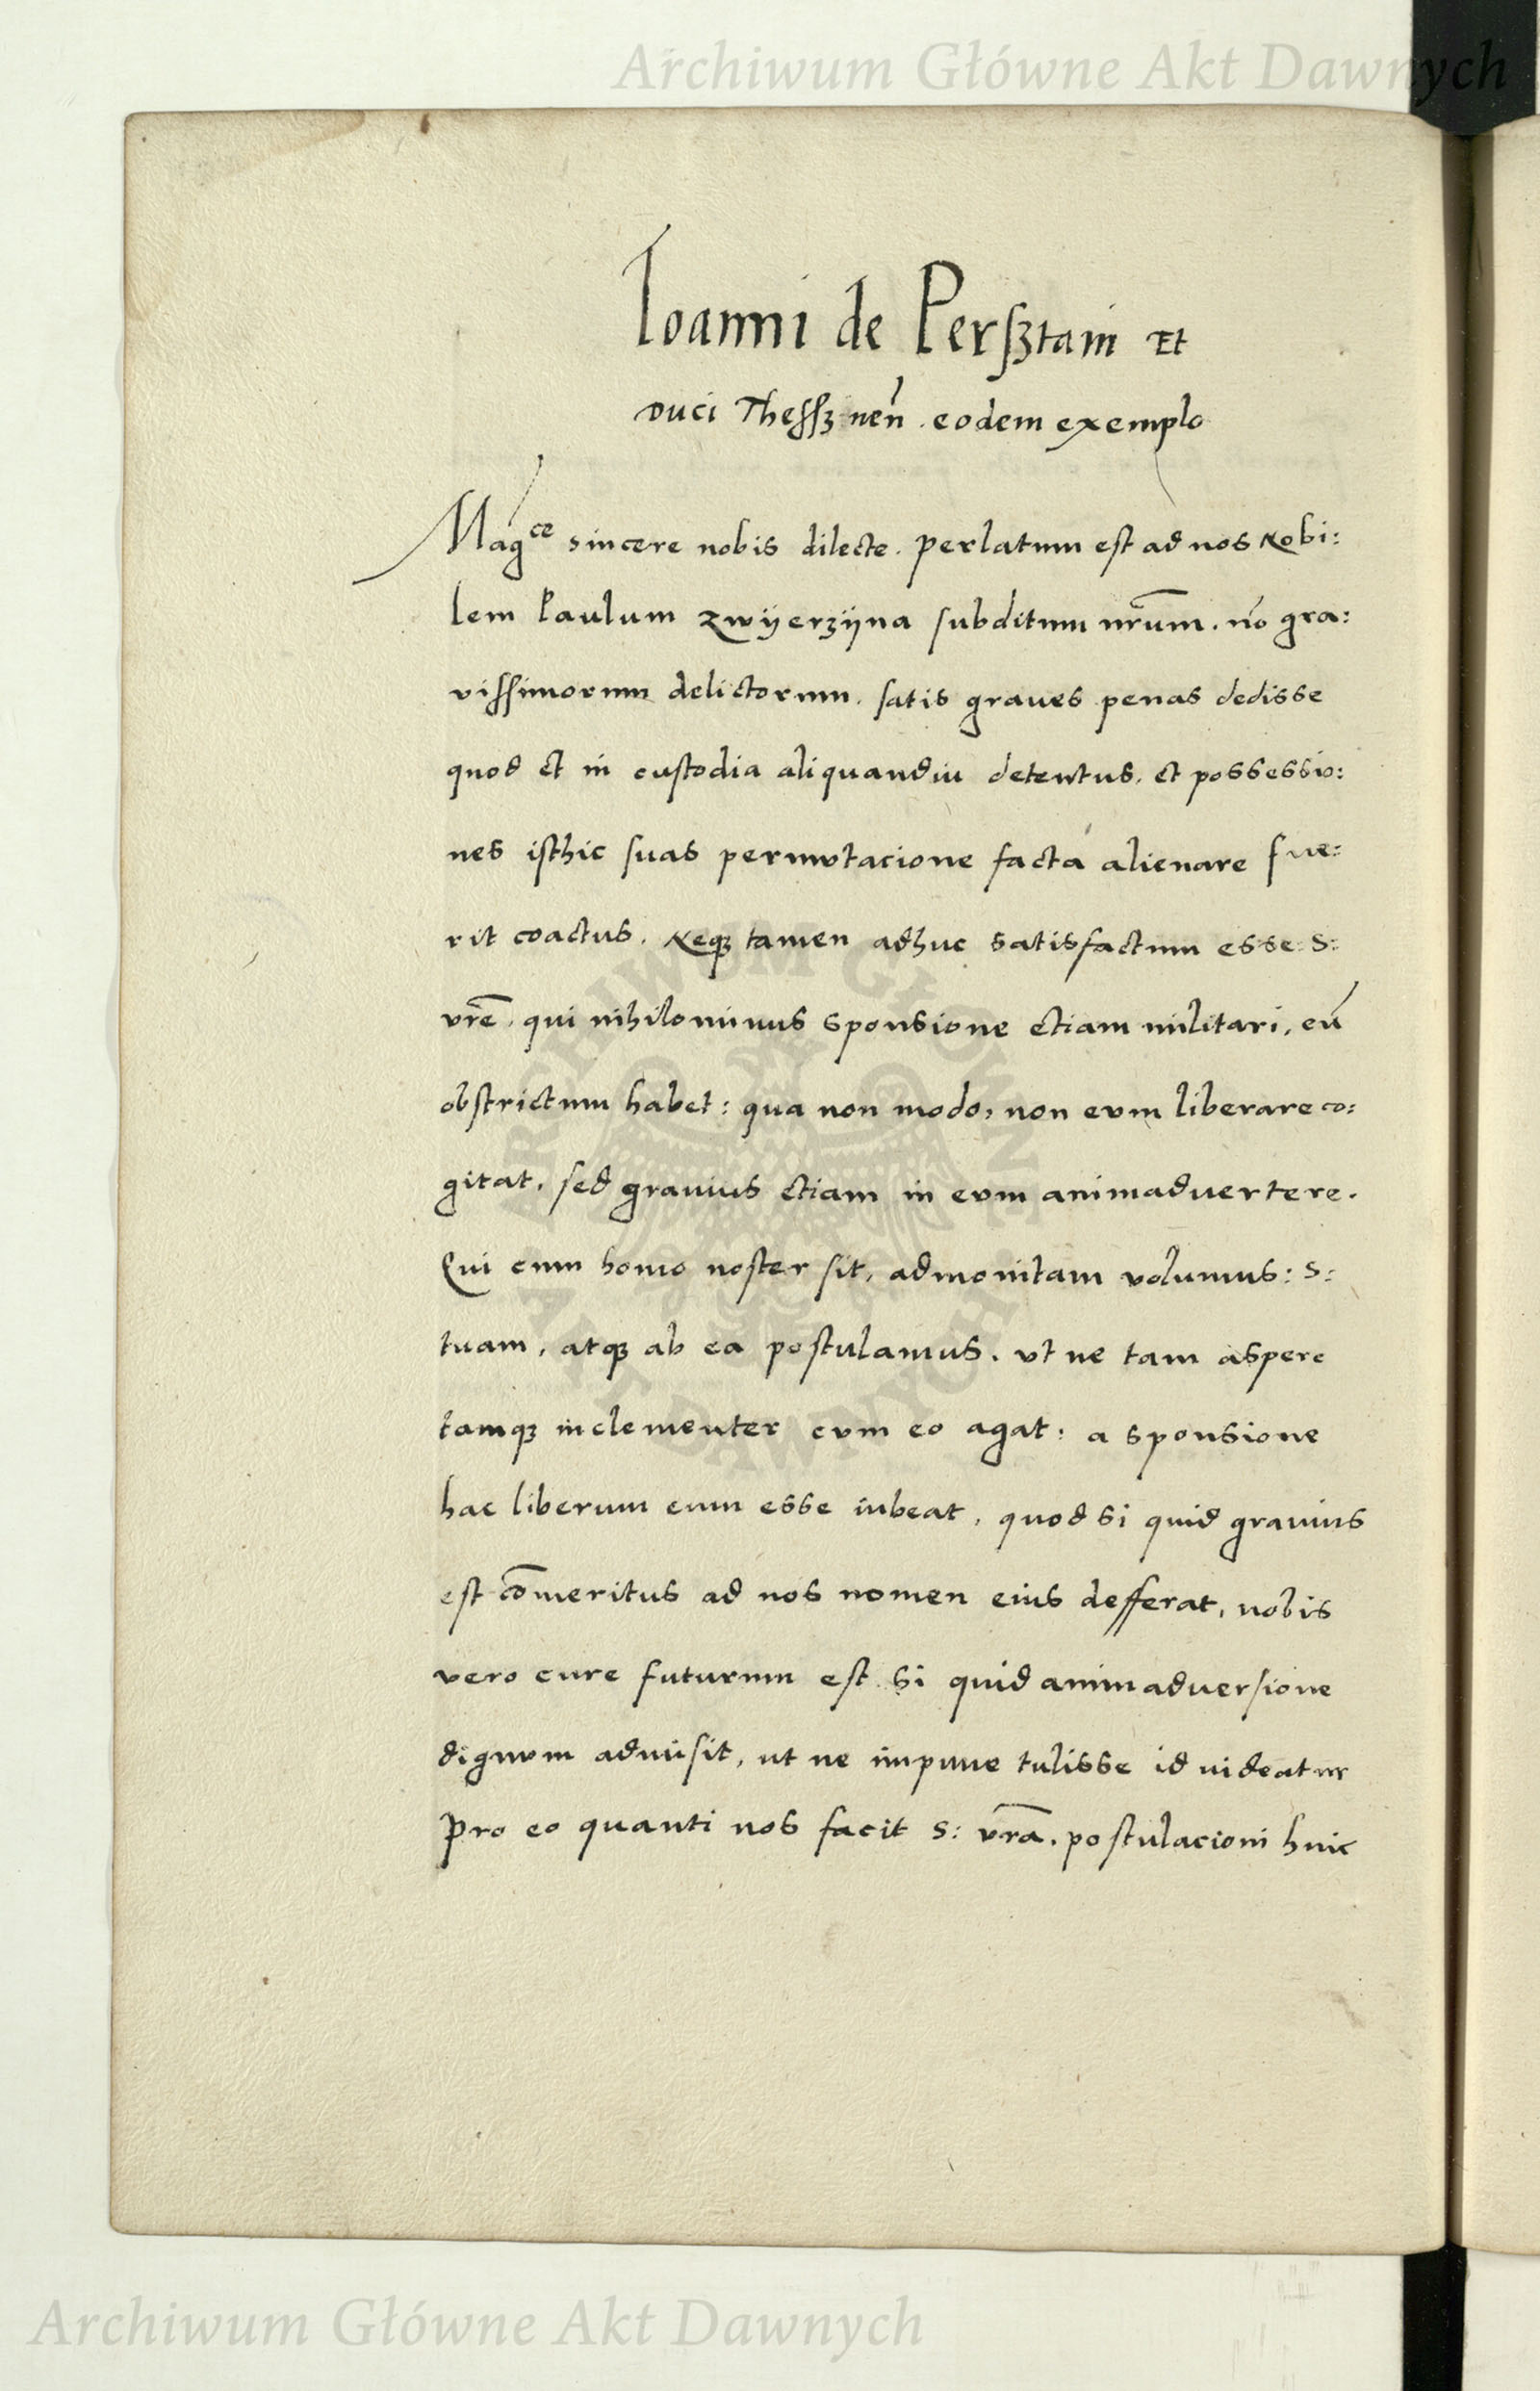 Archiwum Główne Akt Dawnych
Ioanni de Perſztain Et
duci Theſſznen̄ . eodem exemplo
Mag^ce sincere nobis dilecte . perlatum est ad nos Nobi:
lem Paulum Zwÿerzÿna subditum nr̄um . nō gra:
vissimorum delictorum . satis graues penas dedisse
quod et in custodia aliquandiu detentus . et possessio:
nes isthic suas permutacione facta alienare fue:
rit coactus . Neqꝫ tamen adhuc satisfactum esse : S:
vrē . qui nihilominus sponsione etiam militari, eū
obstrictum habet : qua non modo, non eum liberare co:
gitat . sed grauius etiam in eum animaduertere .
Qui cum homo noster sit, admonitam volumus : S:
tuam , atqꝫ ab ea postulamus . vt ne tam aspere
tamqꝫ inclementer cum eo agat : a sponsione
hac liberum eum esse iubeat , quod si quid grauius
est cōmeritus ad nos nomen eius defferat, nobis
vero cure futurum est si quid animaduersione
dignum admisit, ut ne impune tulisse id uideatur
pro eo quanti nos facit S: vrā . postulacioni huic
ARCHIWUM GŁÓWNE AKT DAWNYCH
Archiwum Główne Akt Dawnych